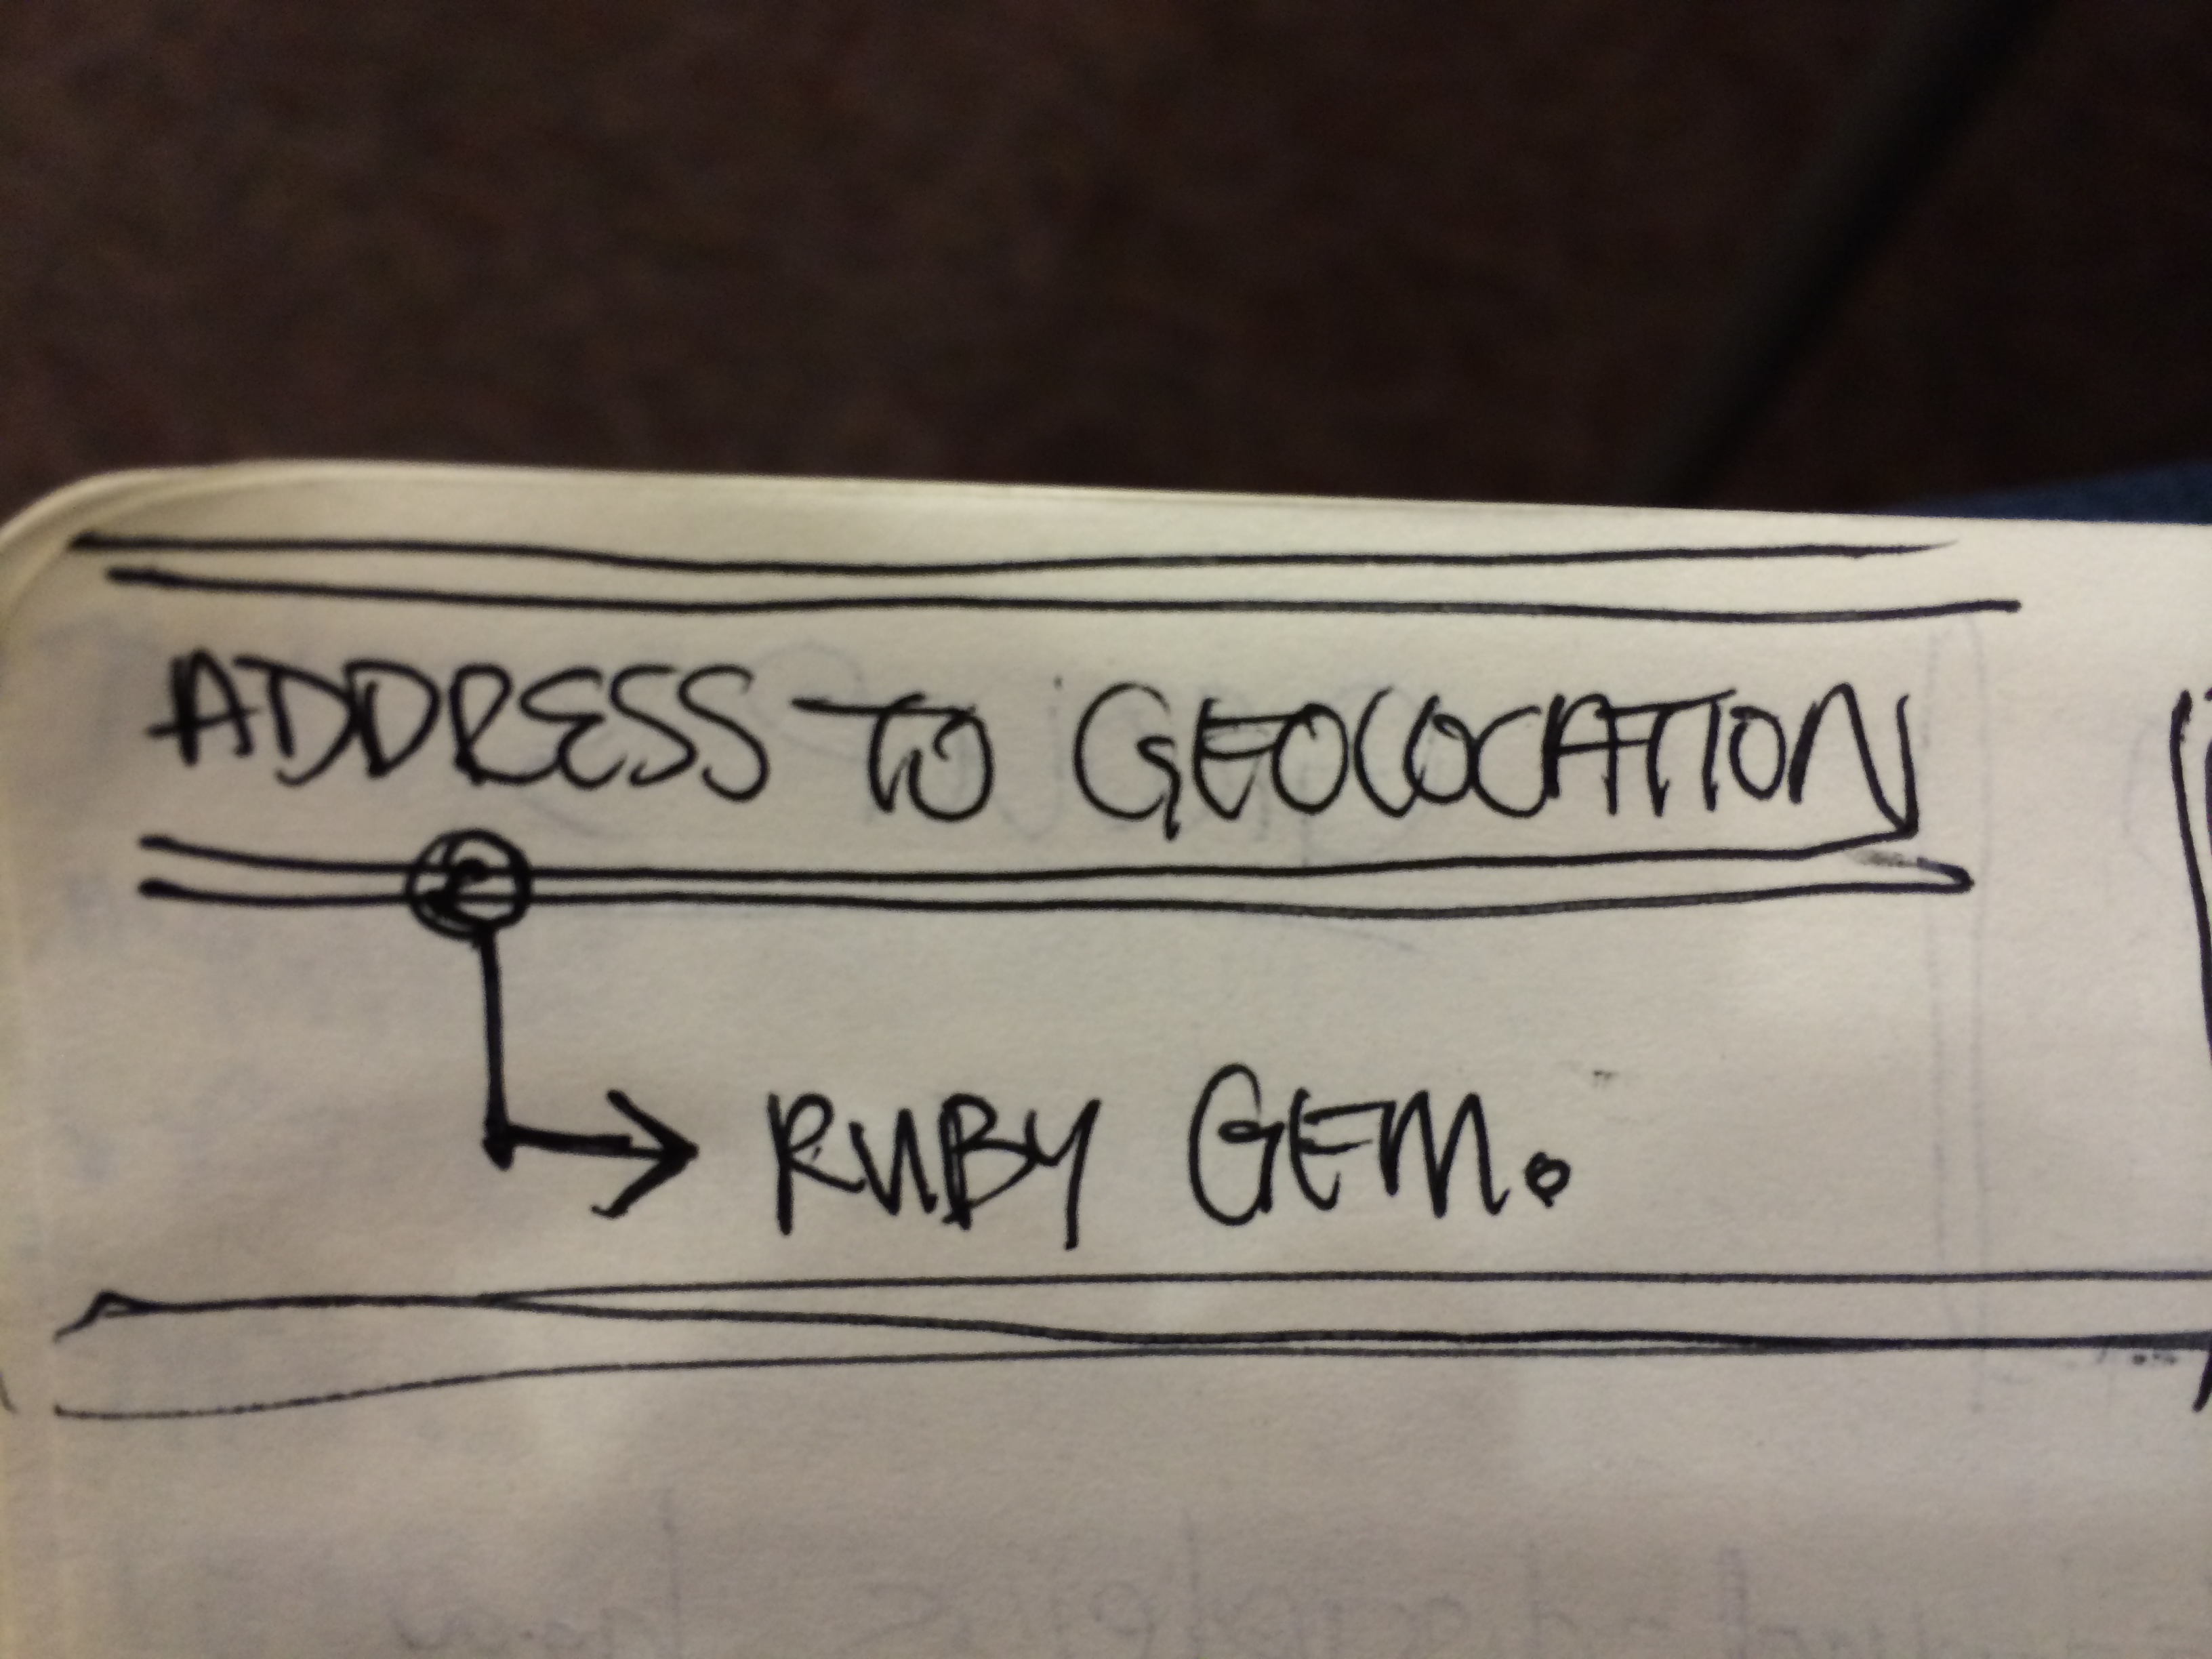 ADDRESS TO GEOLOCATION
RUBY GEM.